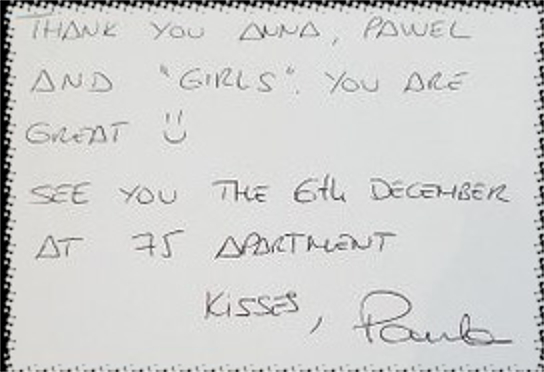 THANK YOU ANNA, PAWEL
AND "GIRLS". YOU ARE
GREAT
SEE YOU THE 6th DECEMBER
AT 75 APARTMENT
KISSES, Paula